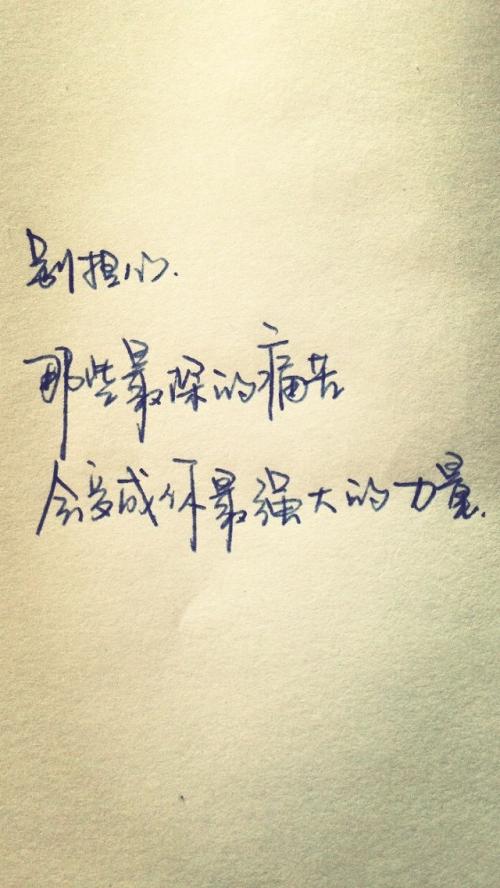 别担心.
那些最深的痛苦
会变成你最强大的力量.